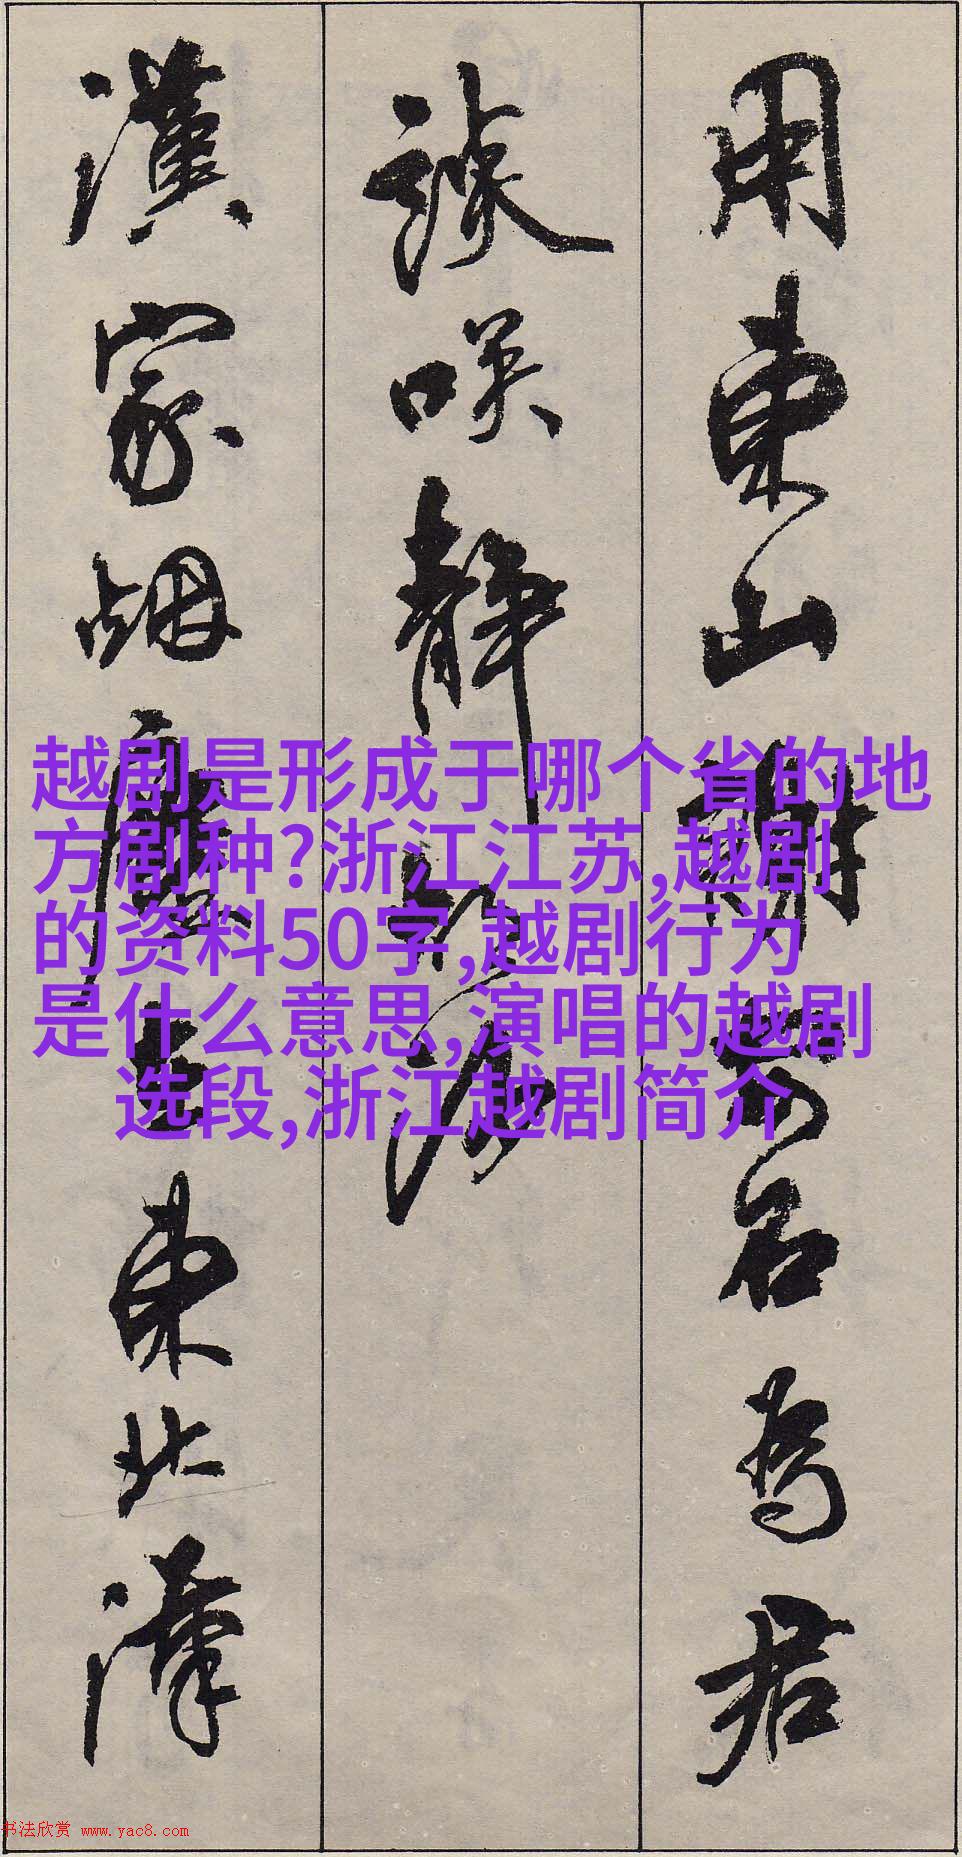 用東山謝安石為君
談咲靜胡沙
漢家烟塵在東北漢
越剧是形成于哪个省的地
方剧种?浙江江苏,越剧
的资料50字,越剧行为
是什么意思,演唱的越剧
选段,浙江越剧简介
书法欣赏 www.yac8.com